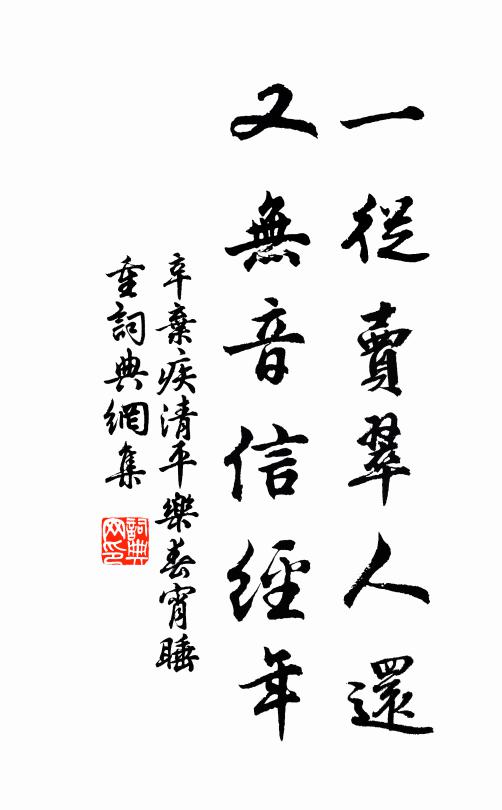 一從賣翠人還
又無音信經年
辛棄疾清平樂春宵睡
重詞典網集
詞典網印